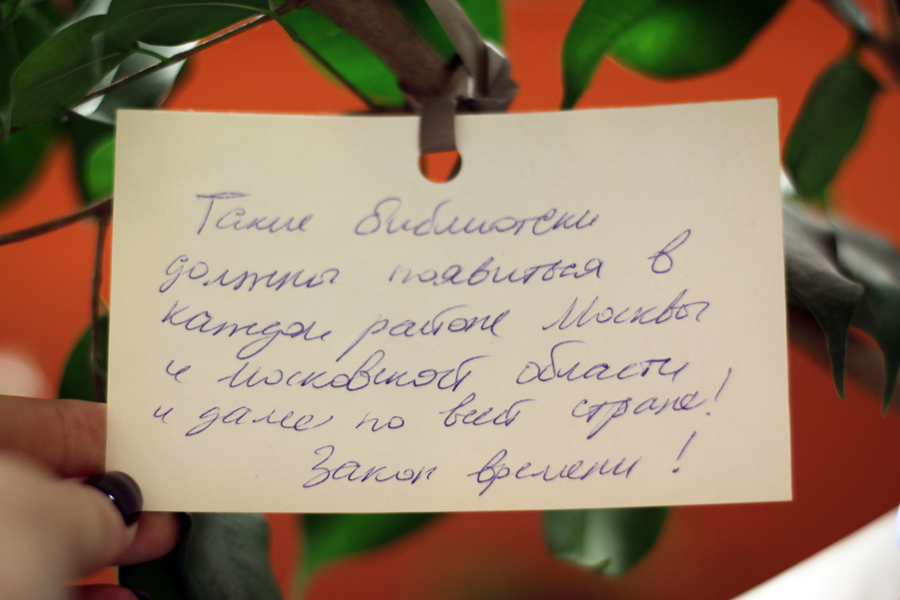 Такие библиотеки
должны появиться в
каждом районе Москвы
и московской области
и далее по всей стране!
Закон времени!